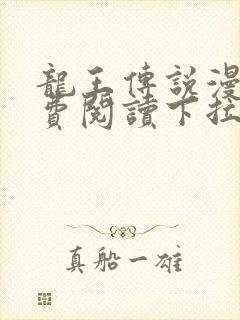 龍王傳說漫
費閱讀下拉
真船一雄